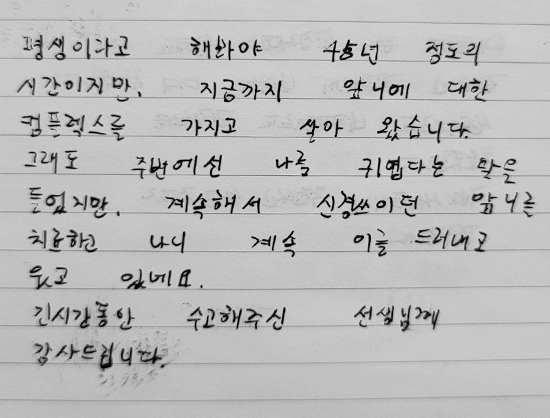 평생이라고 해봐야 45년 정도의
시간이지만, 지금까지 앞니에 대한
컴플렉스를 가지고 살아 왔습니다.
그래도 주변에선 나름 귀엽다는 말을
들었지만, 계속해서 신경쓰이던 앞니를
치료하고 나니 계속 이를 드러내고
웃고 있네요.
긴시간동안 수고해주신 선생님께
감사드립니다.